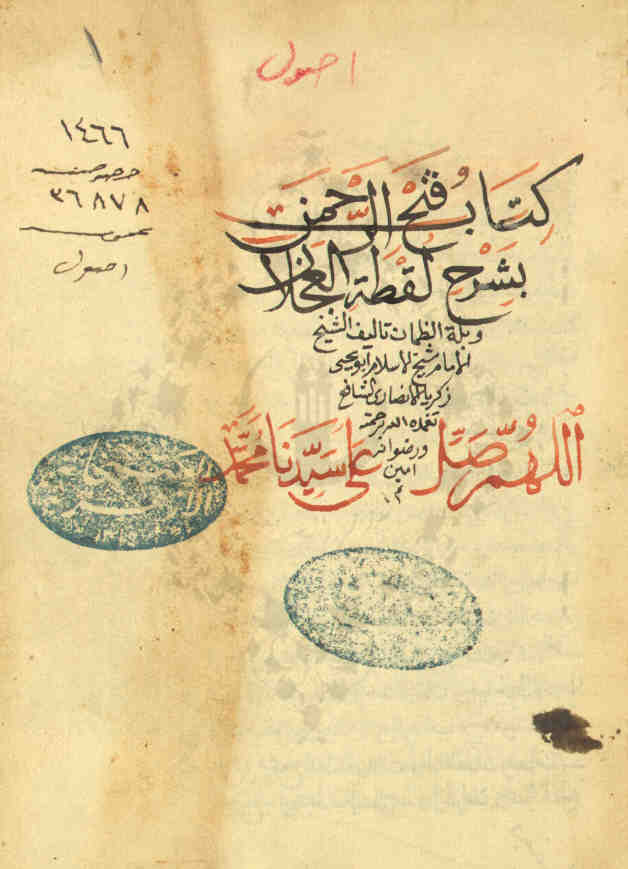 ١
اصول
١٤٦٦
٣٦٨٧٨
اصول
كِتَاب فَتْح الرَّحمن
بِشَرْحِ لُقْطَة العَجْلان
وبلة الظمان تاليف الشيخ
الامام شيخ الاسلام ابو يحيى
زكريا الانصاري الشافعي
تغمده الله برحمته
ورضوانه
امين
اللَّهُمَّ صَلِّ عَلَى سَيِّدِنَا مُحَمَّد